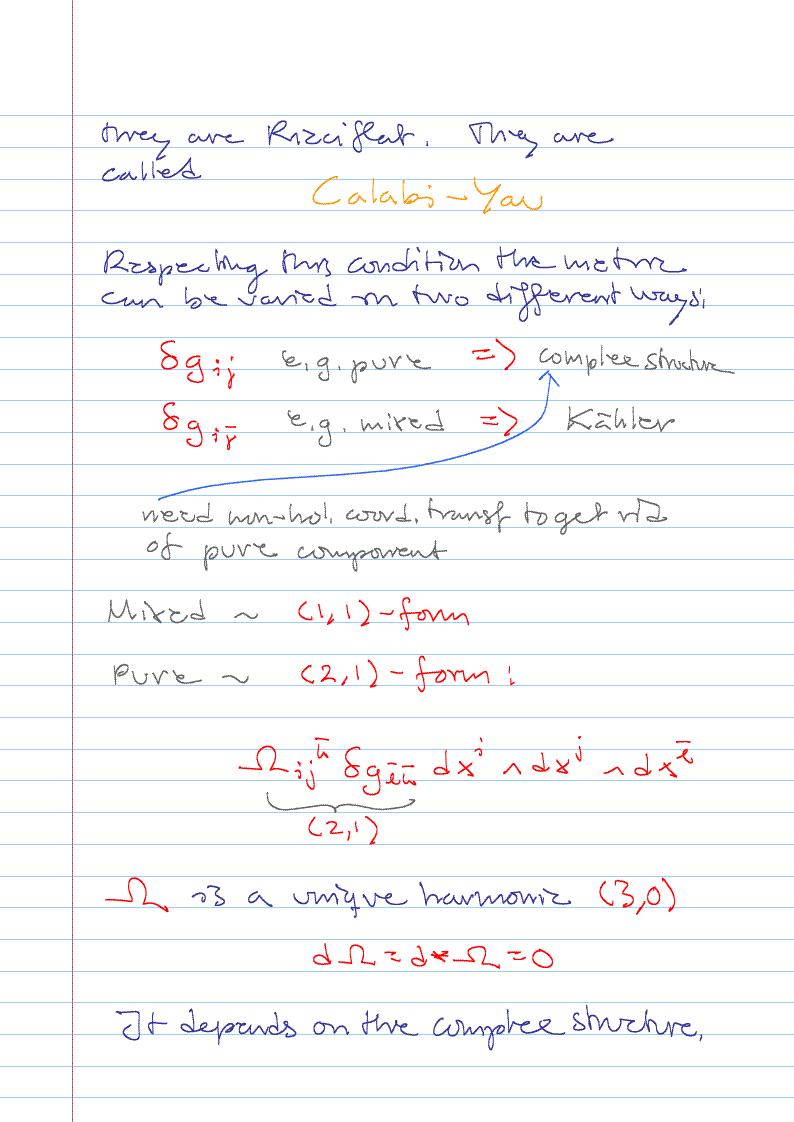 they are Ricciflat. They are
called
Calabi-Yau
Respecting this condition the metric
can be varied in two different ways:
δg_{ij} e.g. pure => complex structure
δg_{i\bar{j}} e.g. mixed => Kähler
need non-hol. coord. transf to get rid
of pure component
Mixed ~ (1,1)-form
Pure ~ (2,1)-form:
Ω_{ij}^{\bar{k}} δg_{\bar{l}\bar{k}} dx^i ∧ dx^j ∧ dx^{\bar{l}}
(2,1)
Ω is a unique harmonic (3,0)
dΩ = d*Ω = 0
It depends on the complex structure,